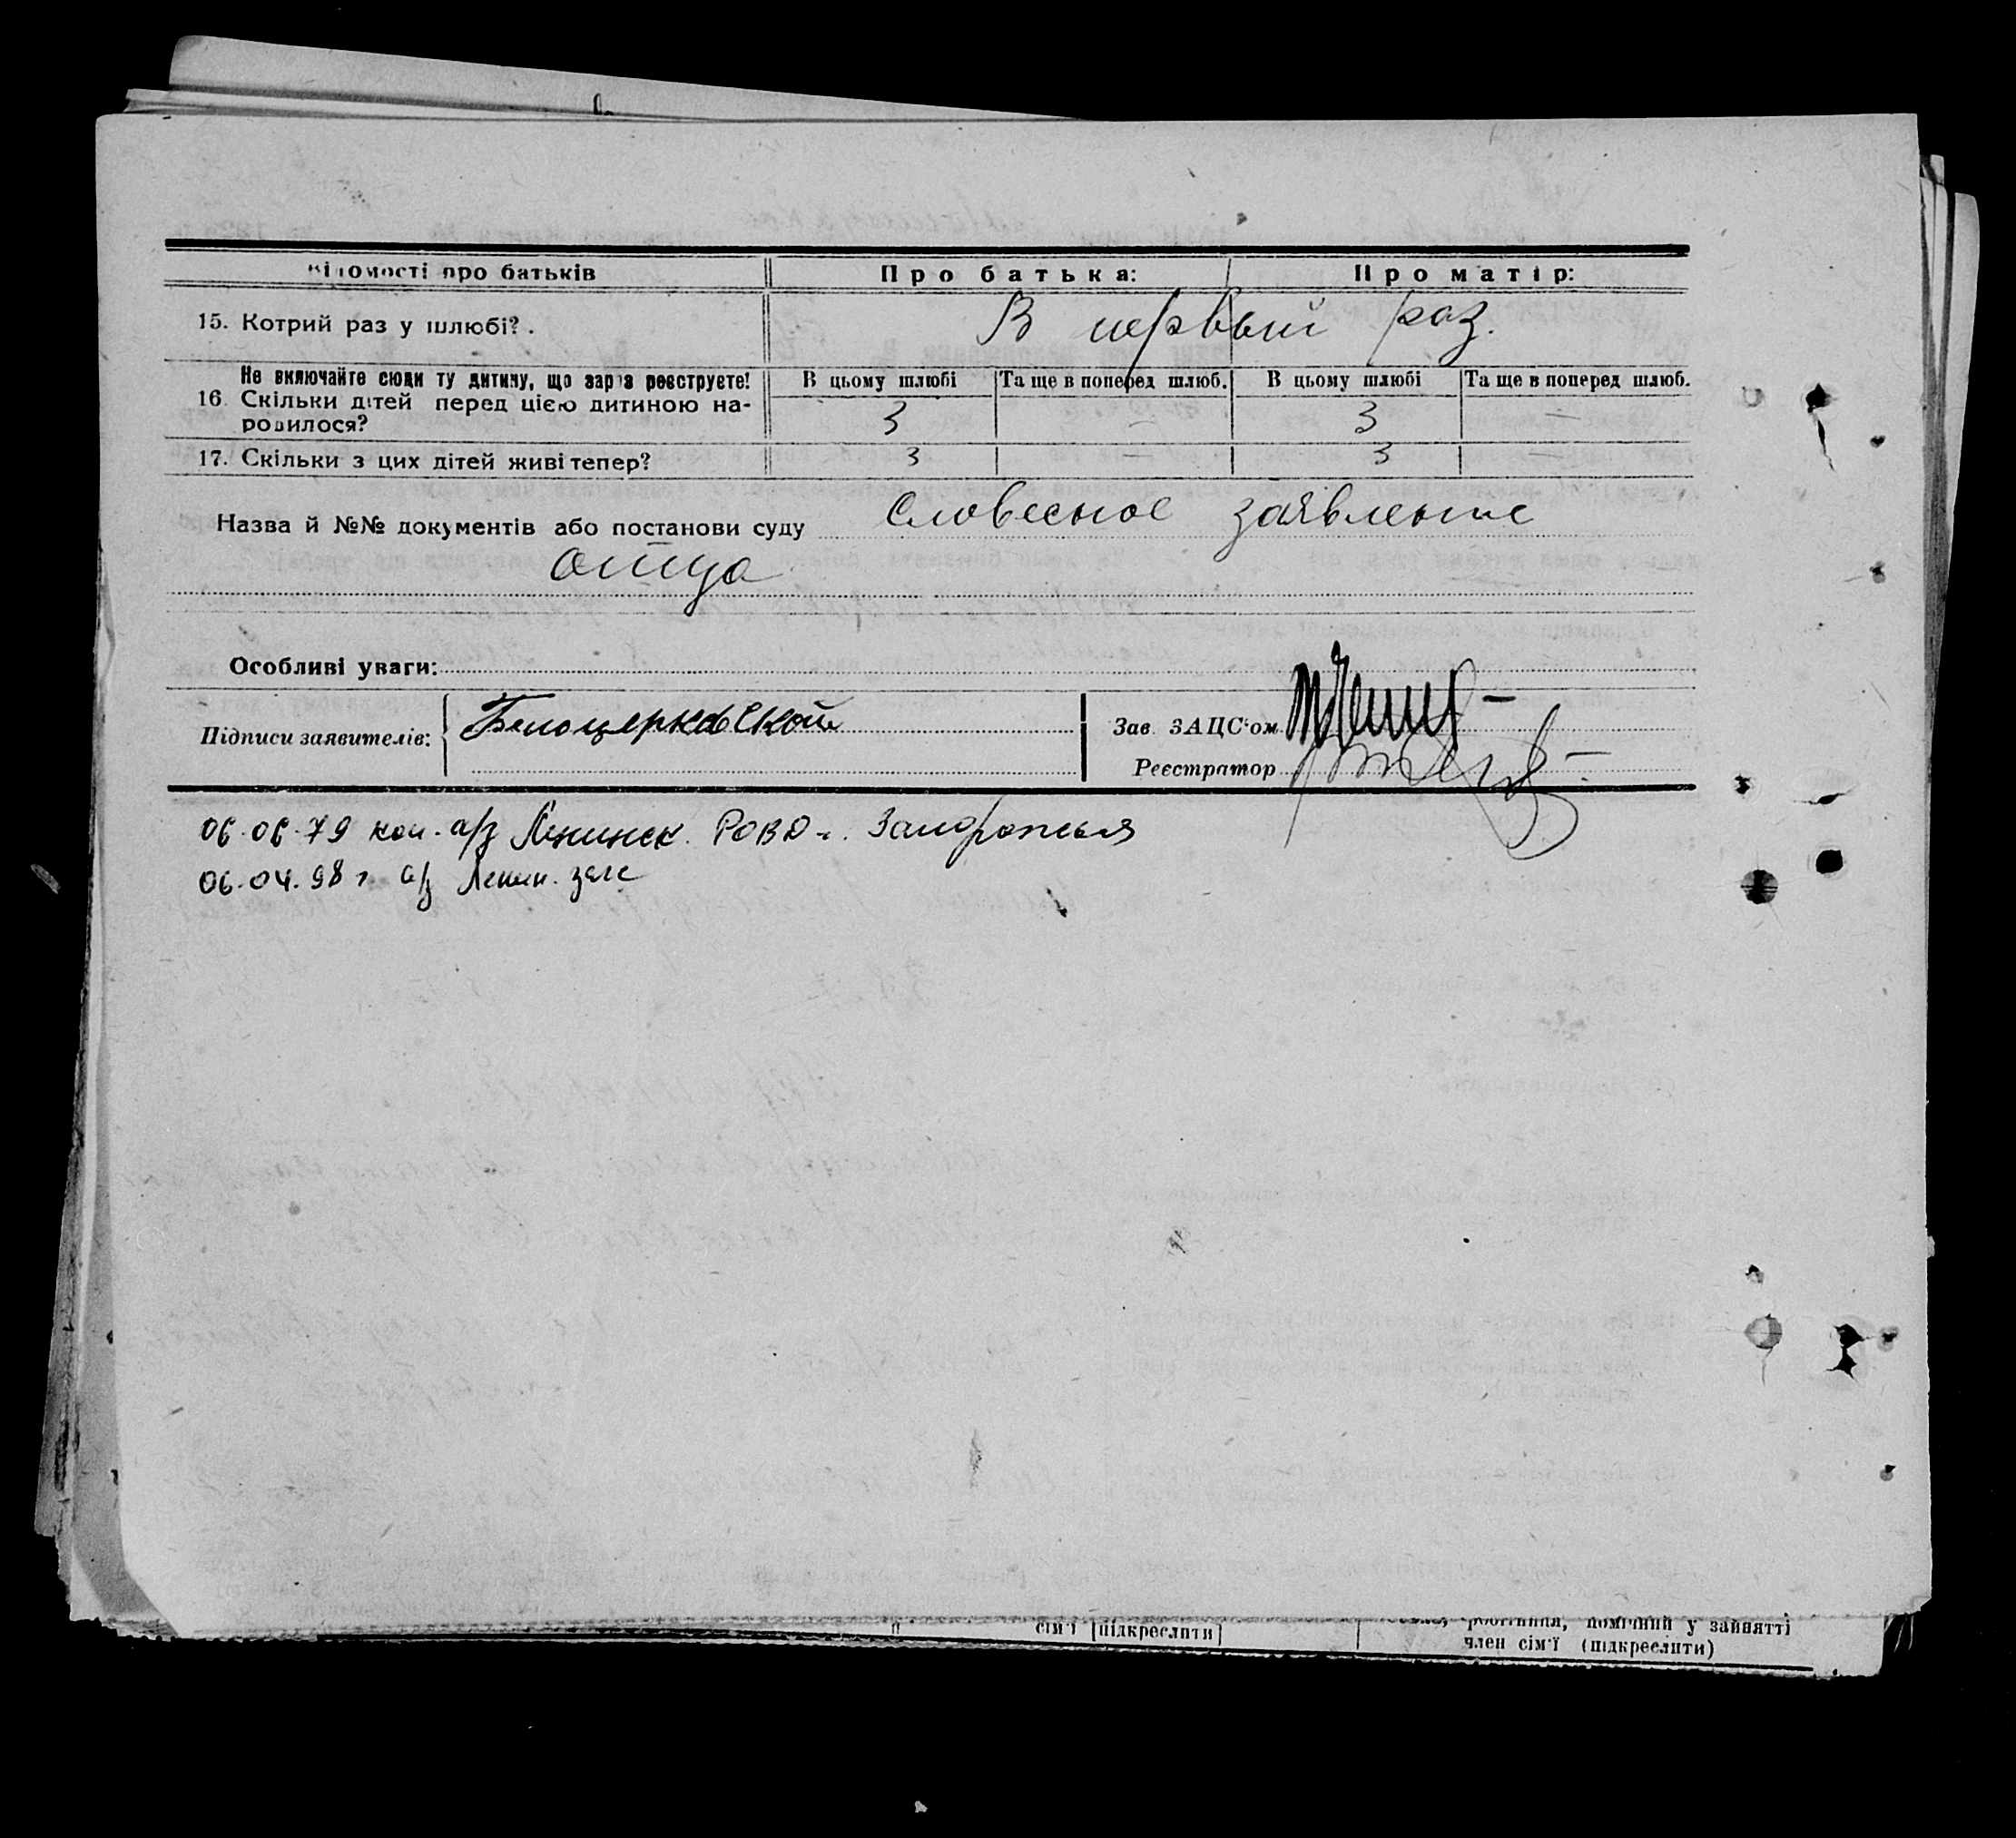 Відомості про батьків Про батька: Про матір:
15. Котрий раз у шлюбі? . В первый раз.
Не включайте сюди ту дитину, що зараз реєструєте! В цьому шлюбі Та ще в поперед шлюб. В цьому шлюбі Та ще в поперед шлюб.
16. Скільки дітей перед цією дитиною на-
родилося? 3 — 3 —
17. Скільки з цих дітей живі тепер? 3 — 3 —
Назва й №№ документів або постанови суду Словесное заявление
отца
Особливі уваги:
Підписи заявителів: Белоцерковской Зав. ЗАЦС'ом
Реєстратор
06.06.79 коп. а/з Ленинск. РОВД г. Запорожья
06.04.98 г а/з Ленин. загс
сім'ї (підкреслити) робітниця, помічний у зайнятті
член сім'ї (підкреслити)